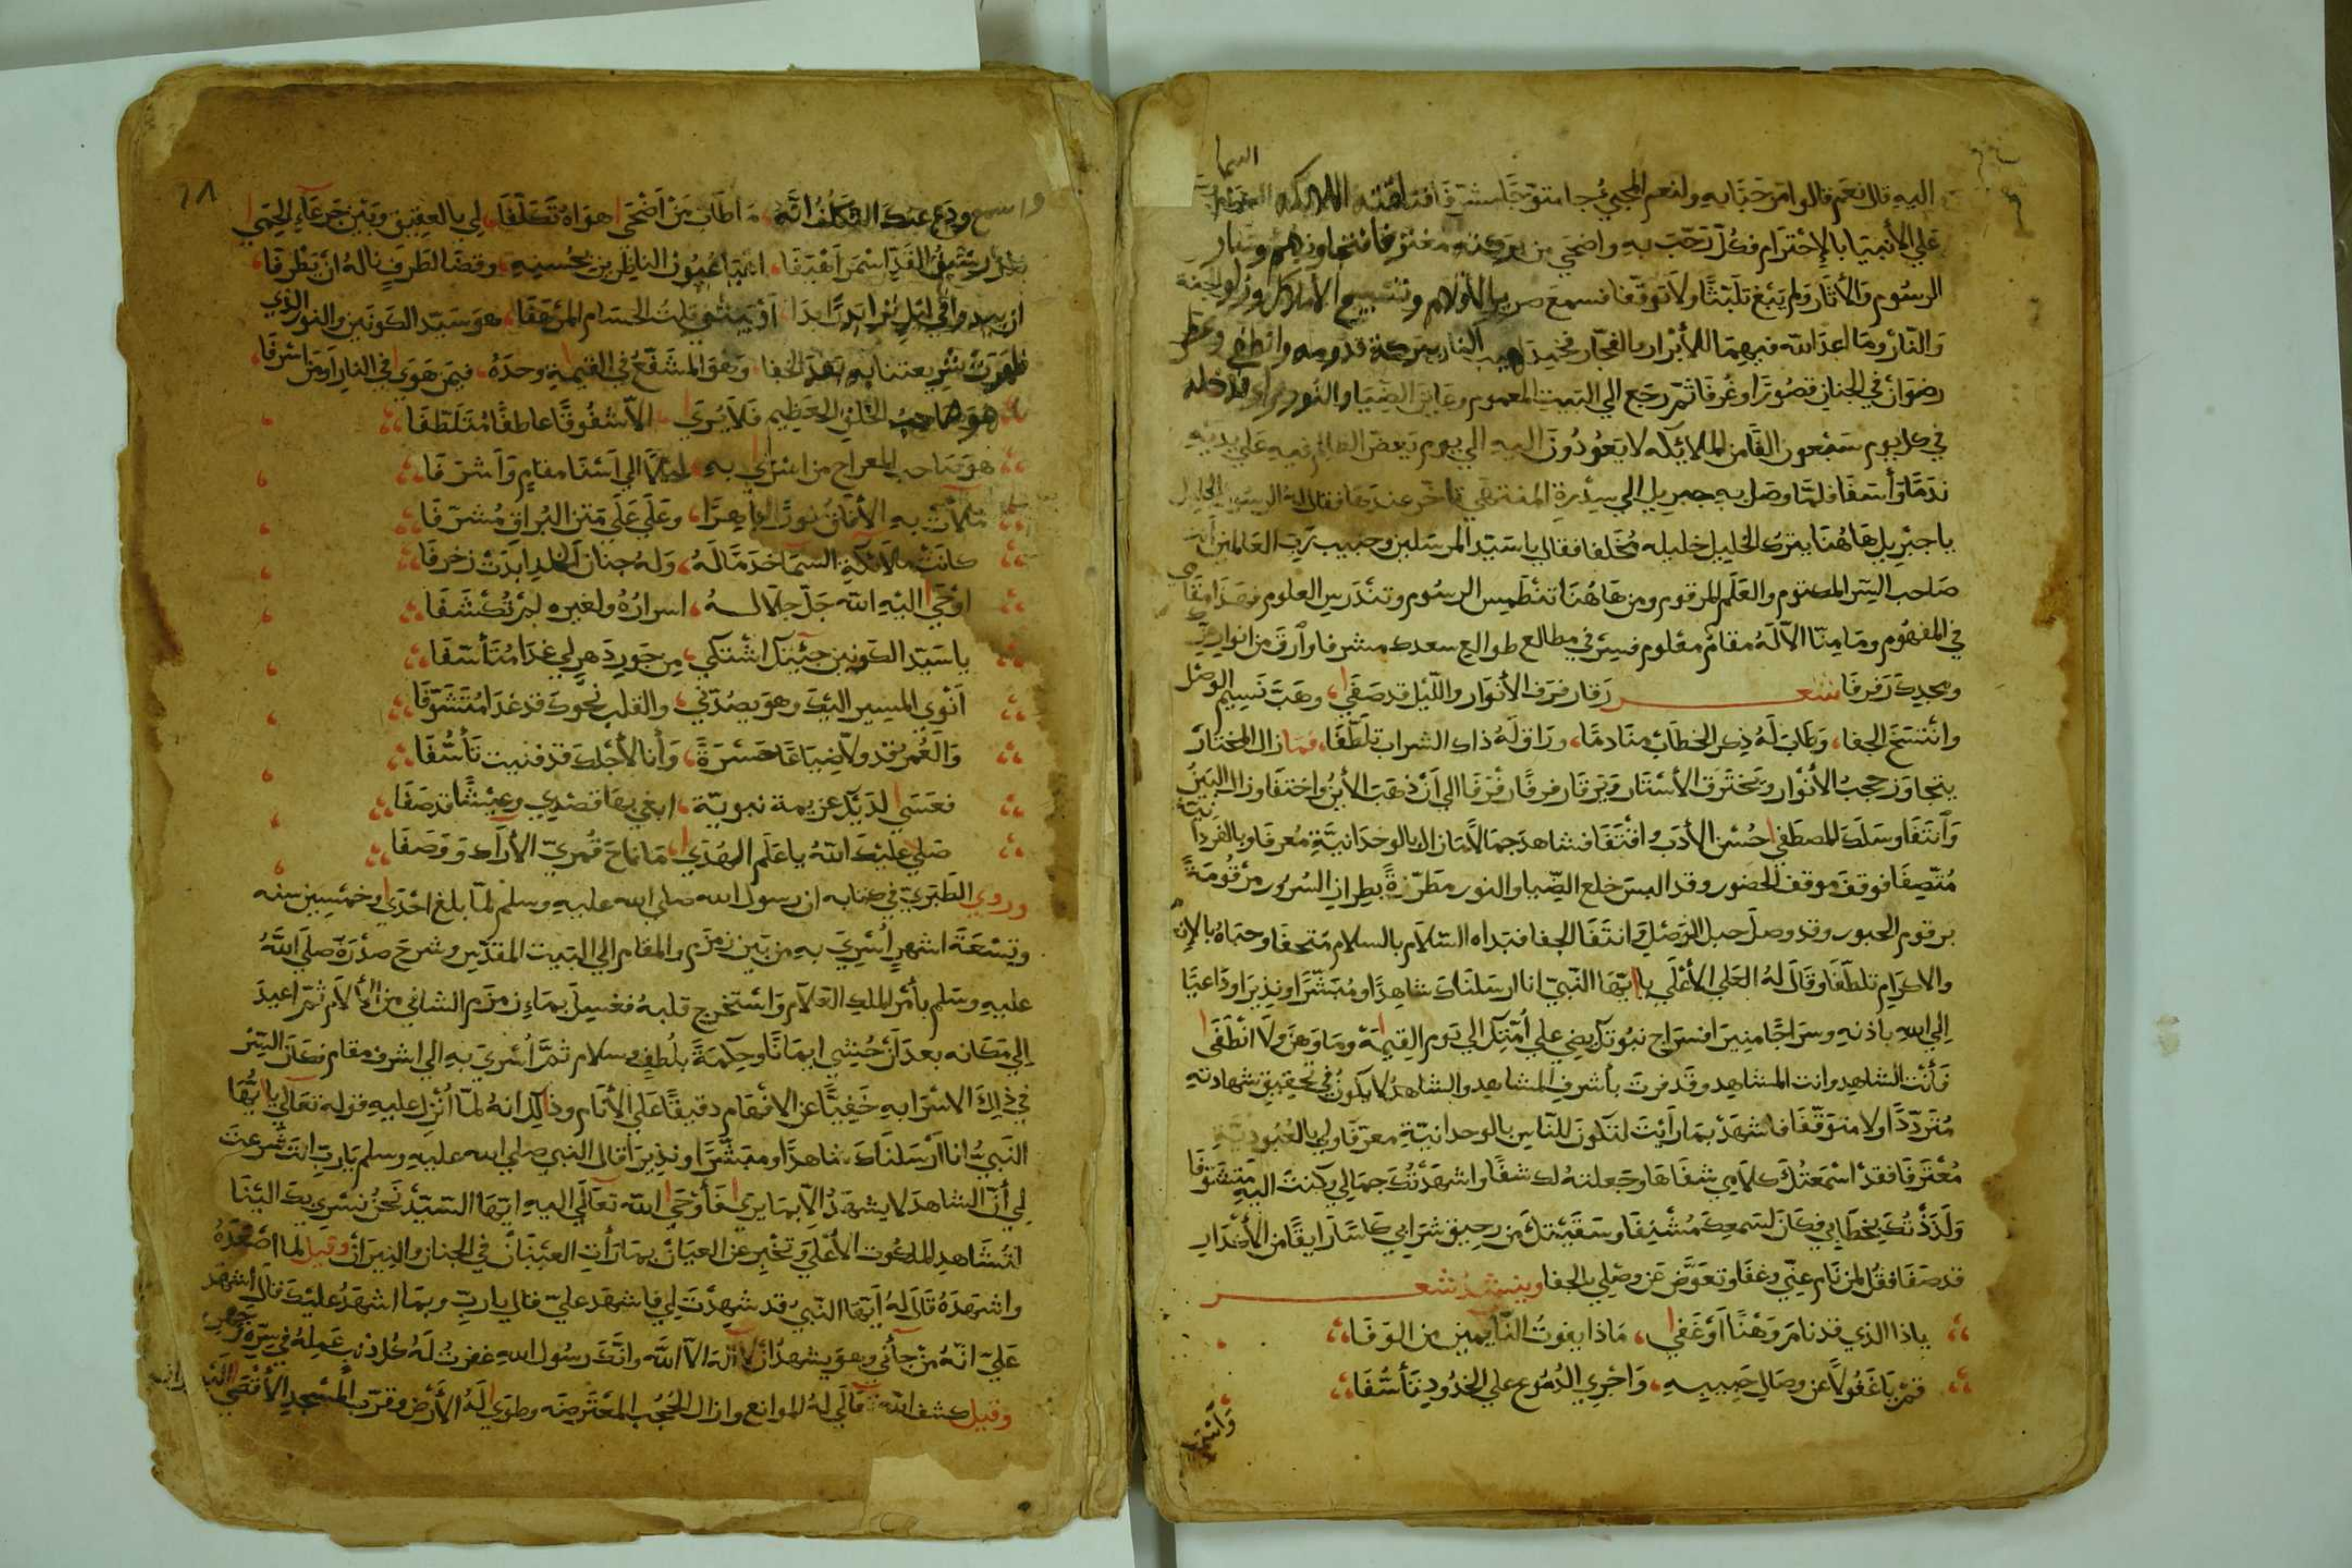 اليه قال نعم قالوا مرحبا به ولنعم المجيئ جا متوجا مشرفا فتلقته الملائكه
السما
علي الأنبيا بالإحترام فكل رحب به واضحي من بركته مغترفا فتجاوزهم وسار
الرسوم والأثار ولم يبغ تلبثا ولا توقفا فسمع صرير الأقلام وتسبيح الأملاك وزار الجنة
والنار وما اعد الله فيهما للأبرار والفجار فخمد لهيب النار ببركة قدومه وانطفي ونظر
رضوان في الجنان قصورا وغرفا ثم رجع الي البيت المعمور وعاين الضيا والنور وراي مدخله
في كل يوم سبعون الفا من الملائكه لا يعودون اليه الي يوم يعض الظالم فيه علي يديه
ندما وأسفا فلما وصل به جبريل الي سدرة المنتهي تاخر عندها فقال له الرسول الجليل
يا جبريل هاهنا يترك الخليل خليله مخلفا فقال يا سيد المرسلين وحبيب رب العالمين أنت
صاحب السر المكتوم والعلم المرقوم ومن هاهنا تنطمس الرسوم وتندرس العلوم فهذا مقامي
في المفهوم وما منا الا له مقام معلوم فسر في مطالع طوالع سعدك مشرفا وارق من انوار
ومجدك رفرفا شعر رقا رفرف الأنوار والليل قد صفي، وهب نسيم الوصل
وانتسخ الجفا، وطاب له ذكر الخطاب منادما، وراق له ذاك الشراب تلطفا، فما زال المختار
يتجاوز حجب الأنوار ويخترق الأستار ويرقا رفرفا رفرفا الي أن ذهب الأين واختفا وزال البين
وانتفا وسلك المصطفي حسن الأدب واقتفا فشاهد جمالا ما زال بالوحدانية معرفا وبالفردانية
متصفا فوقف موقف الحضور وقد البس خلع الضيا والنور مطرزة بطراز السرور مرقومة
برقوم الحبور وقد وصل حبل الوصل وانتفا الجفا فبداه السلام بالسلام متحفا وحباه بالإنعام
والاكرام تلطفا وقال له العلي الأعلي يا ايها النبي انا ارسلناك شاهدا ومبشرا ونذيرا وداعيا
الي الله باذنه وسراجا منيرا فسراج نبوتك يضي علي أمتك الي يوم القيمة وما وهن ولا انطفي
فأنت الشاهد وانت المشاهد وقد فزت بأشرف المشاهد والشاهد لا يكون في تحقيق شهادته
مترددا ولا متوقفا فاشهد بما رأيت لتكون للناس بالوحدانية معرفا ولي بالعبودية
معترفا فقد اسمعتك كلامي شفاها وجعلته لك شفا واشهدتك جمالي وكنت اليه متشوقا
ولذذتك بخطابي فكان لسمعك مشنفا وسقيتك من رحيق شرابي كاسا رايقا من الأكدار
قد صفا فقل لمن نام عني وغفا وتعوض عن وصلي بالجفا وينشد شعر
ياذا الذي قد نام وهنا او غفي، ماذا يفوت النايمين من الوفا
قم يا غفولا عن وصال حبيبه، واجري الدموع علي الخدود تأسفا
واسمع
واسمع ودع عنك التكلف انه، ما طاب من أضحي هواه تكلفا، لي بالعقيق وبين جرعاء الحمي
رشيق القد اسمر أهيفا، اعيا عيون الناظرين بحسنه، وقضا لطرف ناله ان يطرفا
ان يبدو في ليل ترا بدرا بدا، أو ينثني قلت الحسام المرهفا، هو سيد الكونين والنور الذي
ظهرت شريعتنا به بعد الخفا، وهو المشفع في القيمة وحده، فيمن هوي في النار أو من اشرفا
هو صاحب الخلق العظيم فلا يري، الا شفوقا عاطفا متلطفا
هو صاحب المعراج من اسري به، ليلا الي اسفا مقام واشرفا
ملأت به الأفاق نورا باهرا، وعلي علي متن البراق مشرفا
كانت ملائكة السما خدما له، وله جنان الخلد ابدت زخرفا
أوحي اليه الله جل جلاله، اسراره ولغيره لم تكشفا
يا سيد الكونين جيتك اشتكي، من جور دهر لي غدا متأسفا
أنوي المسير اليك وهو يصدني، والقلب نحوك قد غدا متشوقا
والعمر قد ولا ضياعا حسرة، وأنا لأجلك قد فنيت تأسفا
فعسي لديك عزيمة نبوية، ابغي بها قصدي وعيشا قد صفا
صلي عليك الله يا علم الهدي، ما ناح قمري الأراك ورفرفا
وروي الطبري في كتابه ان رسول الله صلي الله عليه وسلم لما بلغ احدي وخمسين سنه
وتسعة اشهر أسري به من بين زمزم والمقام الي البيت المقدس وشرح صدره صلي الله
عليه وسلم بأمر الملك العلام واستخرج قلبه فغسل بماء زمزم الشافي من الألام ثم اعيد
الي مكانه بعد أن حشي ايمانا وحكمة بلطف وسلام ثم أسري به الي اشرف مقام فكان السر
في ذلك الاسرا به خفيا عن الافهام دقيقا علي الأنام وذلك انه لما أنزل عليه قوله تعالي يا ايها
النبي انا أرسلناك شاهدا ومبشرا ونذيرا قال النبي صلي الله عليه وسلم يا رب انت شرعت
لي أن الشاهد لا يشهد الا بما يري فأوحي الله تعالي اليه ايها السيد نحن نسري بك الينا
لتشاهد الملكوت الأعلي وتخبر عن العيان بما رأت العينان في الجنان والنيران وقيل لما اصعده
واشهده قال له أيها النبي قد شهدت لي فاشهد علي قال يا رب وبما اشهد عليك قال أشهد
علي انه من جأني وهو يشهد أن لا اله الا الله وانك رسول الله غفرت له كل ذنب عمله في سره وجهره
وقيل كشف الله تعالي له الموانع وازال الحجب المعترضه وطوي له الأرض وقرب المسجد الأقصي